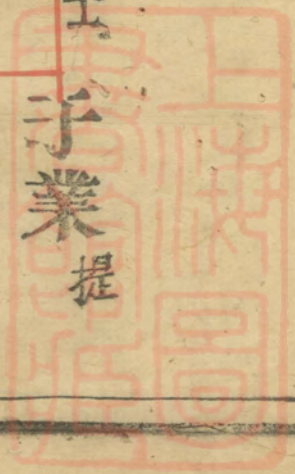 于業
提
上海圖
書館藏